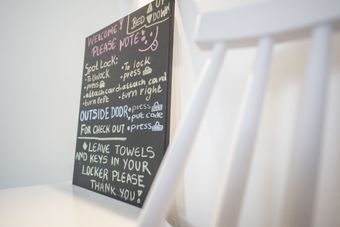 UP
BED DOWN
WELCOME!
PLEASE NOTE:
Spot Lock:
To Unlock
• press
• attach card
• turn left
To lock
• press
• attach card
• turn right
OUTSIDE DOOR • press
• put code
FOR CHECK OUT • press
LEAVE TOWELS
AND KEYS IN YOUR
LOCKER PLEASE
THANK YOU!